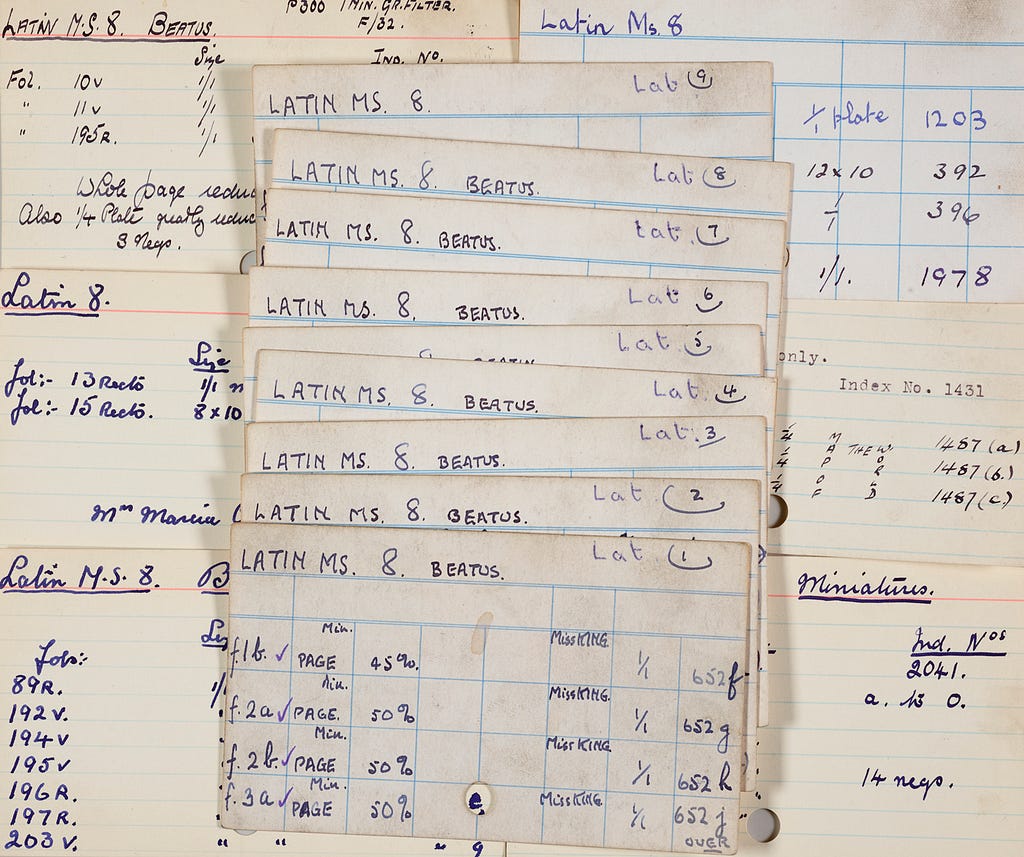 LATIN M.S. 8. BEATUS.
P300 1 MIN. GR. FILTER.
F/32.
Size
IND. NO.
Fol. 10v 1/1
" 11v 1/1
" 195R. 1/1
Whole page
Also 1/4 Plate greatly
3 Negs.
Latin Ms. 8
1/1 plate 1203
12 x 10 392
396
1/1. 1978
Latin 8.
Size
fol:- 13 Recto 1/1
fol:- 15 Recto. 8 x 10
Marcia
only.
Index No. 1431
1/4 M 1487 (a)
1/4 A THEW 1487 (b.)
1/4 1487 (c.)
Latin M.S. 8. B
Fols:-
89R. 1/1
192 v.
194 v
195 v
196 R.
197 R.
203 v. " " " 9
Miniatures.
Ind. Nos
2041.
a. to o.
14 negs.
LATIN MS. 8. Lat 9
LATIN MS. 8. BEATUS. Lat 8
LATIN MS. 8. BEATUS. Lat. 7
LATIN MS. 8. BEATUS. Lat 6
Lat. 5
LATIN MS. 8. BEATUS. Lat. 4
LATIN MS. 8. BEATUS. Lat. 3
LATIN MS. 8. BEATUS. Lat. 2
LATIN MS. 8. BEATUS. Lat. 1
f.1b. ✓ Min. PAGE 45%. Miss KING. 1/1 652f
f.2a ✓ Min. PAGE. 50% Miss KING. 1/1 652g
f.2b. ✓ Min. PAGE 50% Miss KING. 1/1 652h
f.3a ✓ Min. PAGE 50% e Miss KING. 1/1 652j
OVER